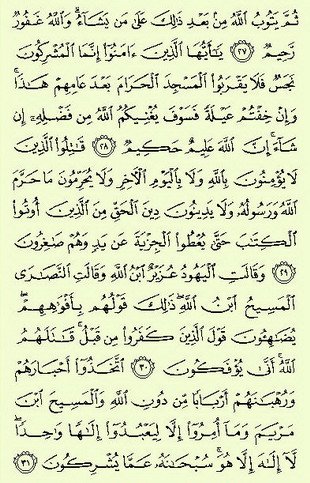 ثُمَّ يَتُوبُ ٱللَّهُ مِنۢ بَعْدِ ذَٰلِكَ عَلَىٰ مَن يَشَآءُ ۗ وَٱللَّهُ غَفُورٌ
رَّحِيمٌ ﴿٢٧﴾ يَٰٓأَيُّهَا ٱلَّذِينَ ءَامَنُوٓا۟ إِنَّمَا ٱلْمُشْرِكُونَ
نَجَسٌ فَلَا يَقْرَبُوا۟ ٱلْمَسْجِدَ ٱلْحَرَامَ بَعْدَ عَامِهِمْ هَٰذَا ۚ
وَإِنْ خِفْتُمْ عَيْلَةً فَسَوْفَ يُغْنِيكُمُ ٱللَّهُ مِن فَضْلِهِۦٓ إِن
شَآءَ ۚ إِنَّ ٱللَّهَ عَلِيمٌ حَكِيمٌ ﴿٢٨﴾ قَٰتِلُوا۟ ٱلَّذِينَ
لَا يُؤْمِنُونَ بِٱللَّهِ وَلَا بِٱلْيَوْمِ ٱلْءَاخِرِ وَلَا يُحَرِّمُونَ مَا حَرَّمَ
ٱللَّهُ وَرَسُولُهُۥ وَلَا يَدِينُونَ دِينَ ٱلْحَقِّ مِنَ ٱلَّذِينَ أُوتُوا۟
ٱلْكِتَٰبَ حَتَّىٰ يُعْطُوا۟ ٱلْجِزْيَةَ عَن يَدٍ وَهُمْ صَٰغِرُونَ
﴿٢٩﴾ وَقَالَتِ ٱلْيَهُودُ عُزَيْرٌ ٱبْنُ ٱللَّهِ وَقَالَتِ ٱلنَّصَٰرَى
ٱلْمَسِيحُ ٱبْنُ ٱللَّهِ ۖ ذَٰلِكَ قَوْلُهُم بِأَفْوَٰهِهِمْ ۖ
يُضَٰهِـُٔونَ قَوْلَ ٱلَّذِينَ كَفَرُوا۟ مِن قَبْلُ ۚ قَٰتَلَهُمُ
ٱللَّهُ ۚ أَنَّىٰ يُؤْفَكُونَ ﴿٣٠﴾ ٱتَّخَذُوٓا۟ أَحْبَارَهُمْ
وَرُهْبَٰنَهُمْ أَرْبَابًا مِّن دُونِ ٱللَّهِ وَٱلْمَسِيحَ ٱبْنَ
مَرْيَمَ وَمَآ أُمِرُوٓا۟ إِلَّا لِيَعْبُدُوٓا۟ إِلَٰهًا وَٰحِدًا ۖ
لَّآ إِلَٰهَ إِلَّا هُوَ ۚ سُبْحَٰنَهُۥ عَمَّا يُشْرِكُونَ ﴿٣١﴾